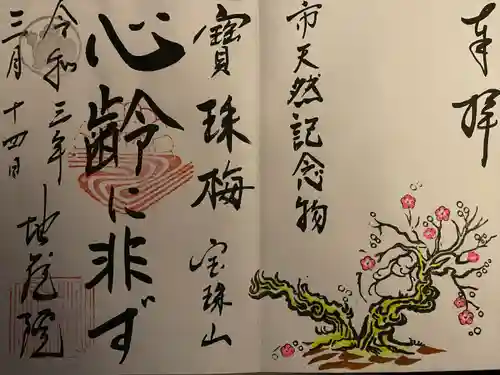 奉拝
市天然記念物
寶珠梅 宝珠山
心齢に非ず
地蔵院
令和三年
三月十四日